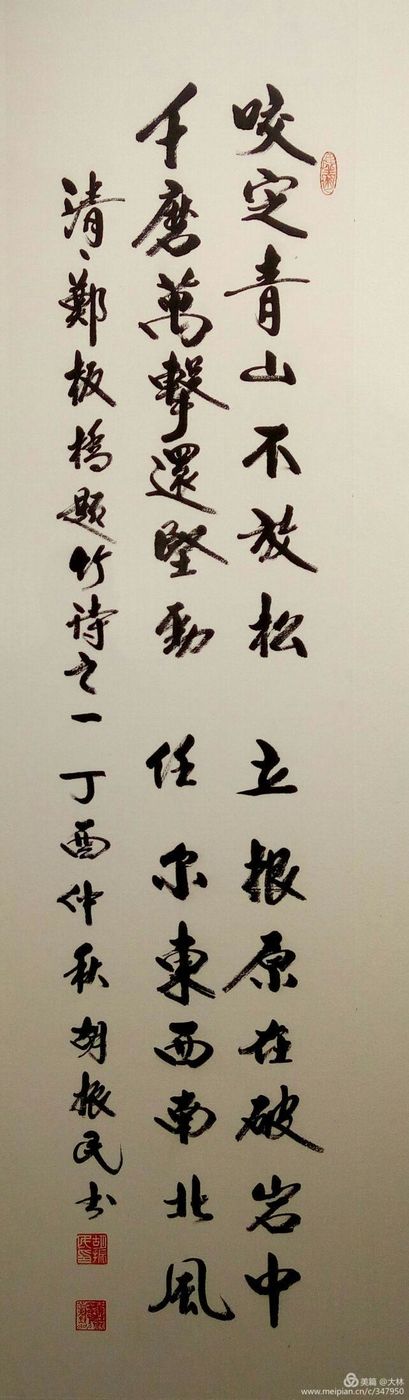 咬定青山不放松 立根原在破岩中
千磨萬擊還堅勁 任尔東西南北風
清、鄭板橋題竹诗之一 丁酉仲秋 胡振民书
美篇 @大林
www.meipian.cn/c/347950